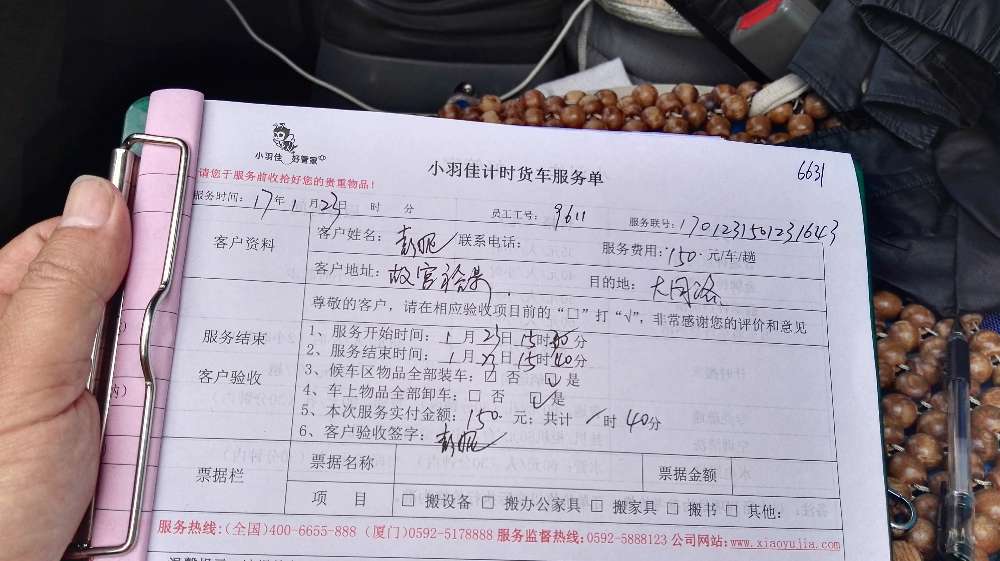 小羽佳 好管家
小羽佳计时货车服务单
6631
请您于服务前收拾好您的贵重物品!
服务时间: 17年 1 月 23日 时 分 员工工号: 9611 服务联号: 1701231501231643
客户资料
客户姓名: 联系电话: 服务费用: 150 元/车/趟
客户地址: 故宫裕景 目的地: 大同路
尊敬的客户, 请在相应验收项目前的“□”打“√”, 非常感谢您的评价和意见
服务结束
客户验收
1、服务开始时间: 1 月 23日 15时 分
2、服务结束时间: 1 月 23日 15时40分
3、候车区物品全部装车: □ 否 ☑ 是
4、车上物品全部卸车: □ 否 ☑ 是
5、本次服务实付金额: 150 元: 共计 / 时 40分
6、客户验收签字:
票据栏
票据名称 票据金额
项 目 □ 搬设备 □ 搬办公家具 □ 搬家具 □ 搬书 □ 其他:
服务热线:(全国)400-6655-888 (厦门)0592-5178888 服务监督热线:0592-5888123 公司网站:www.xiaoyujia.com